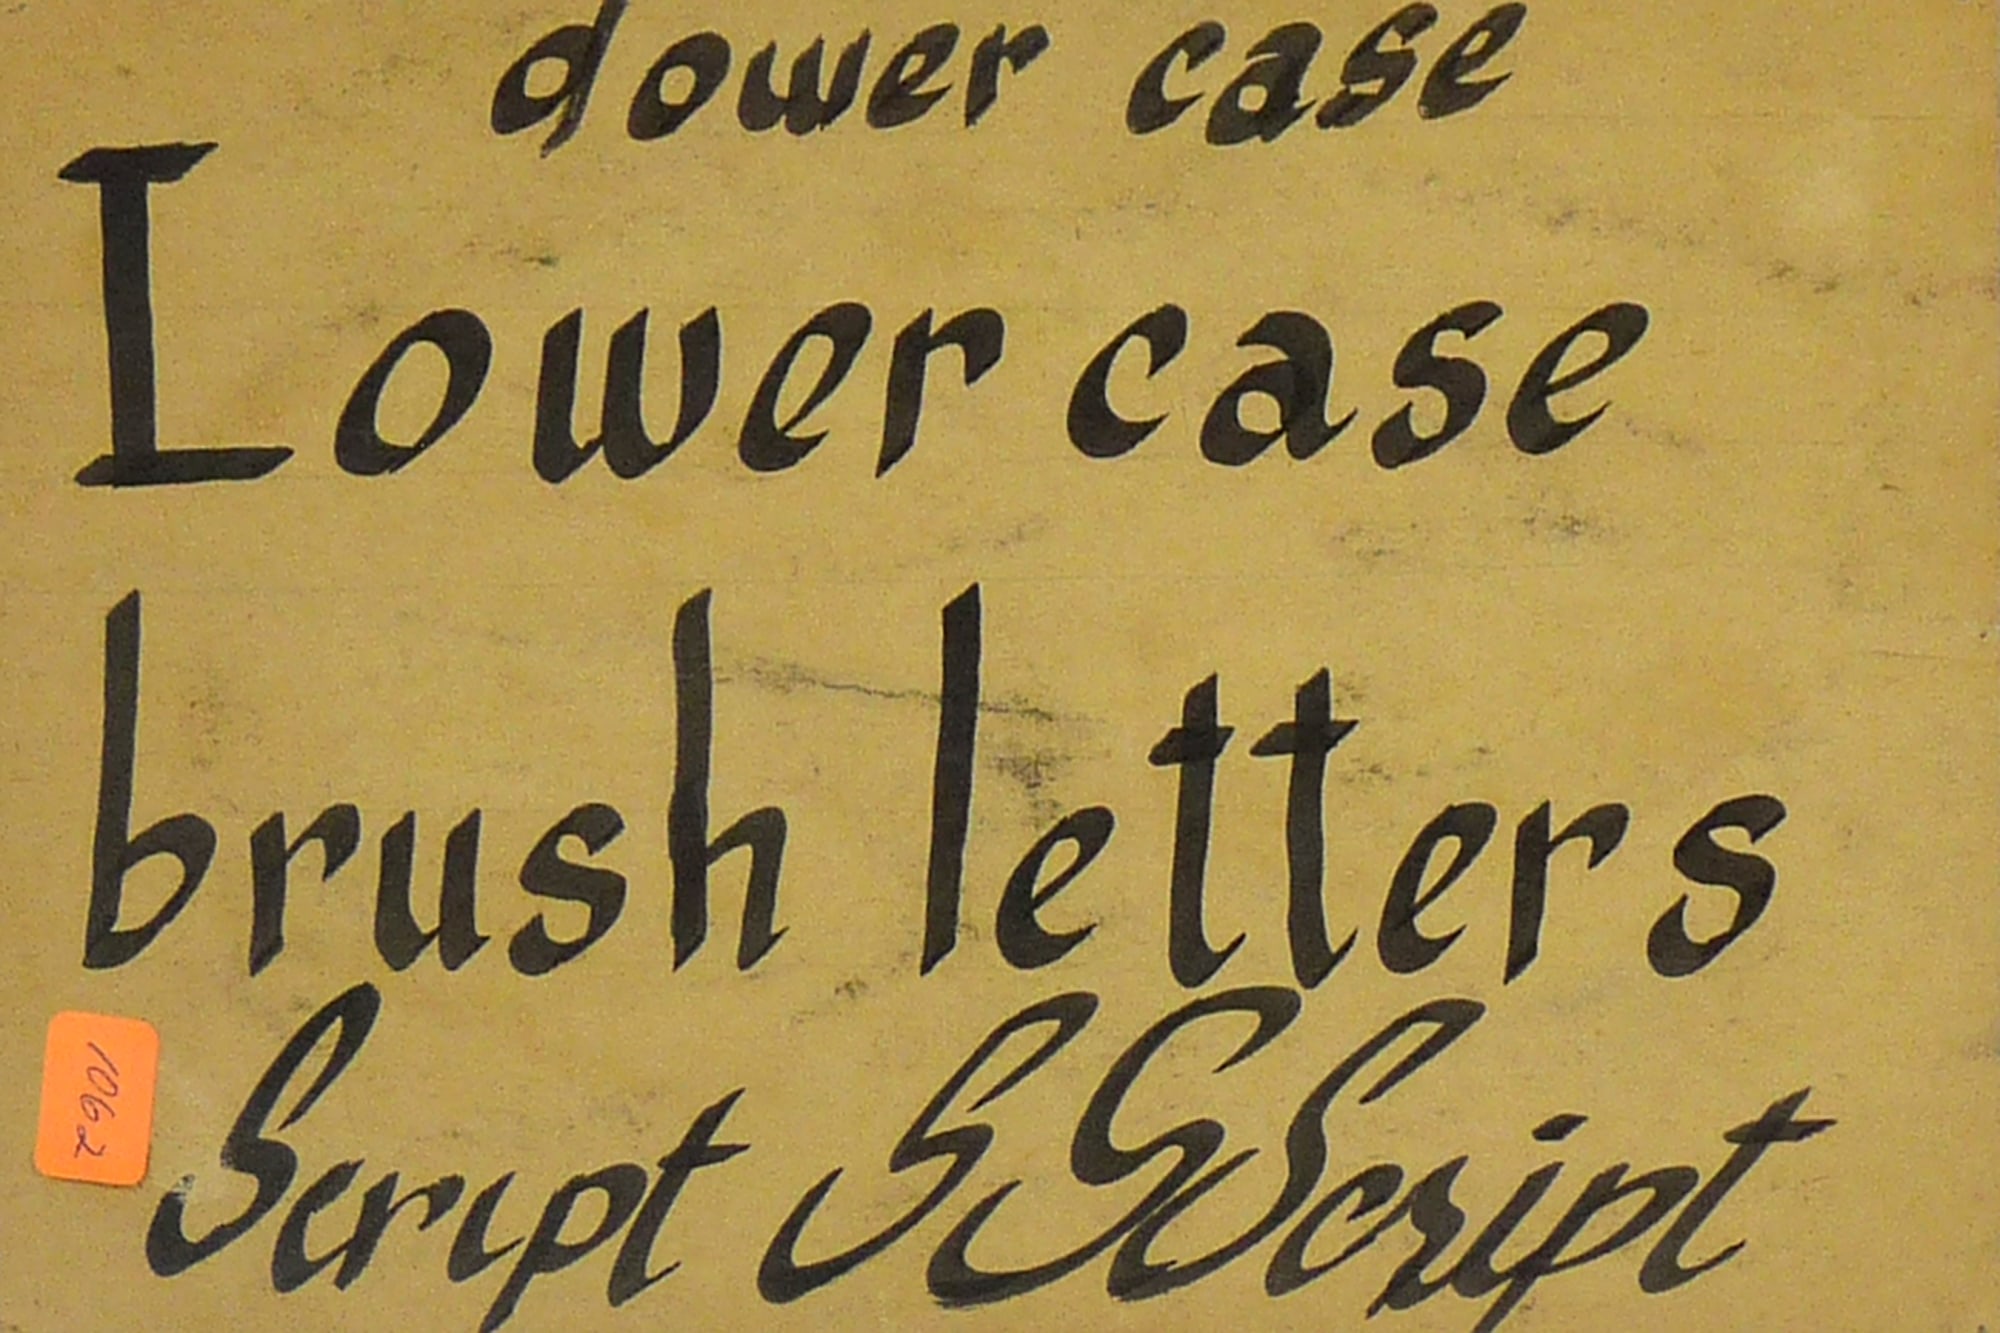 dower case
Lower case
brush letters
Script S S Script
1062